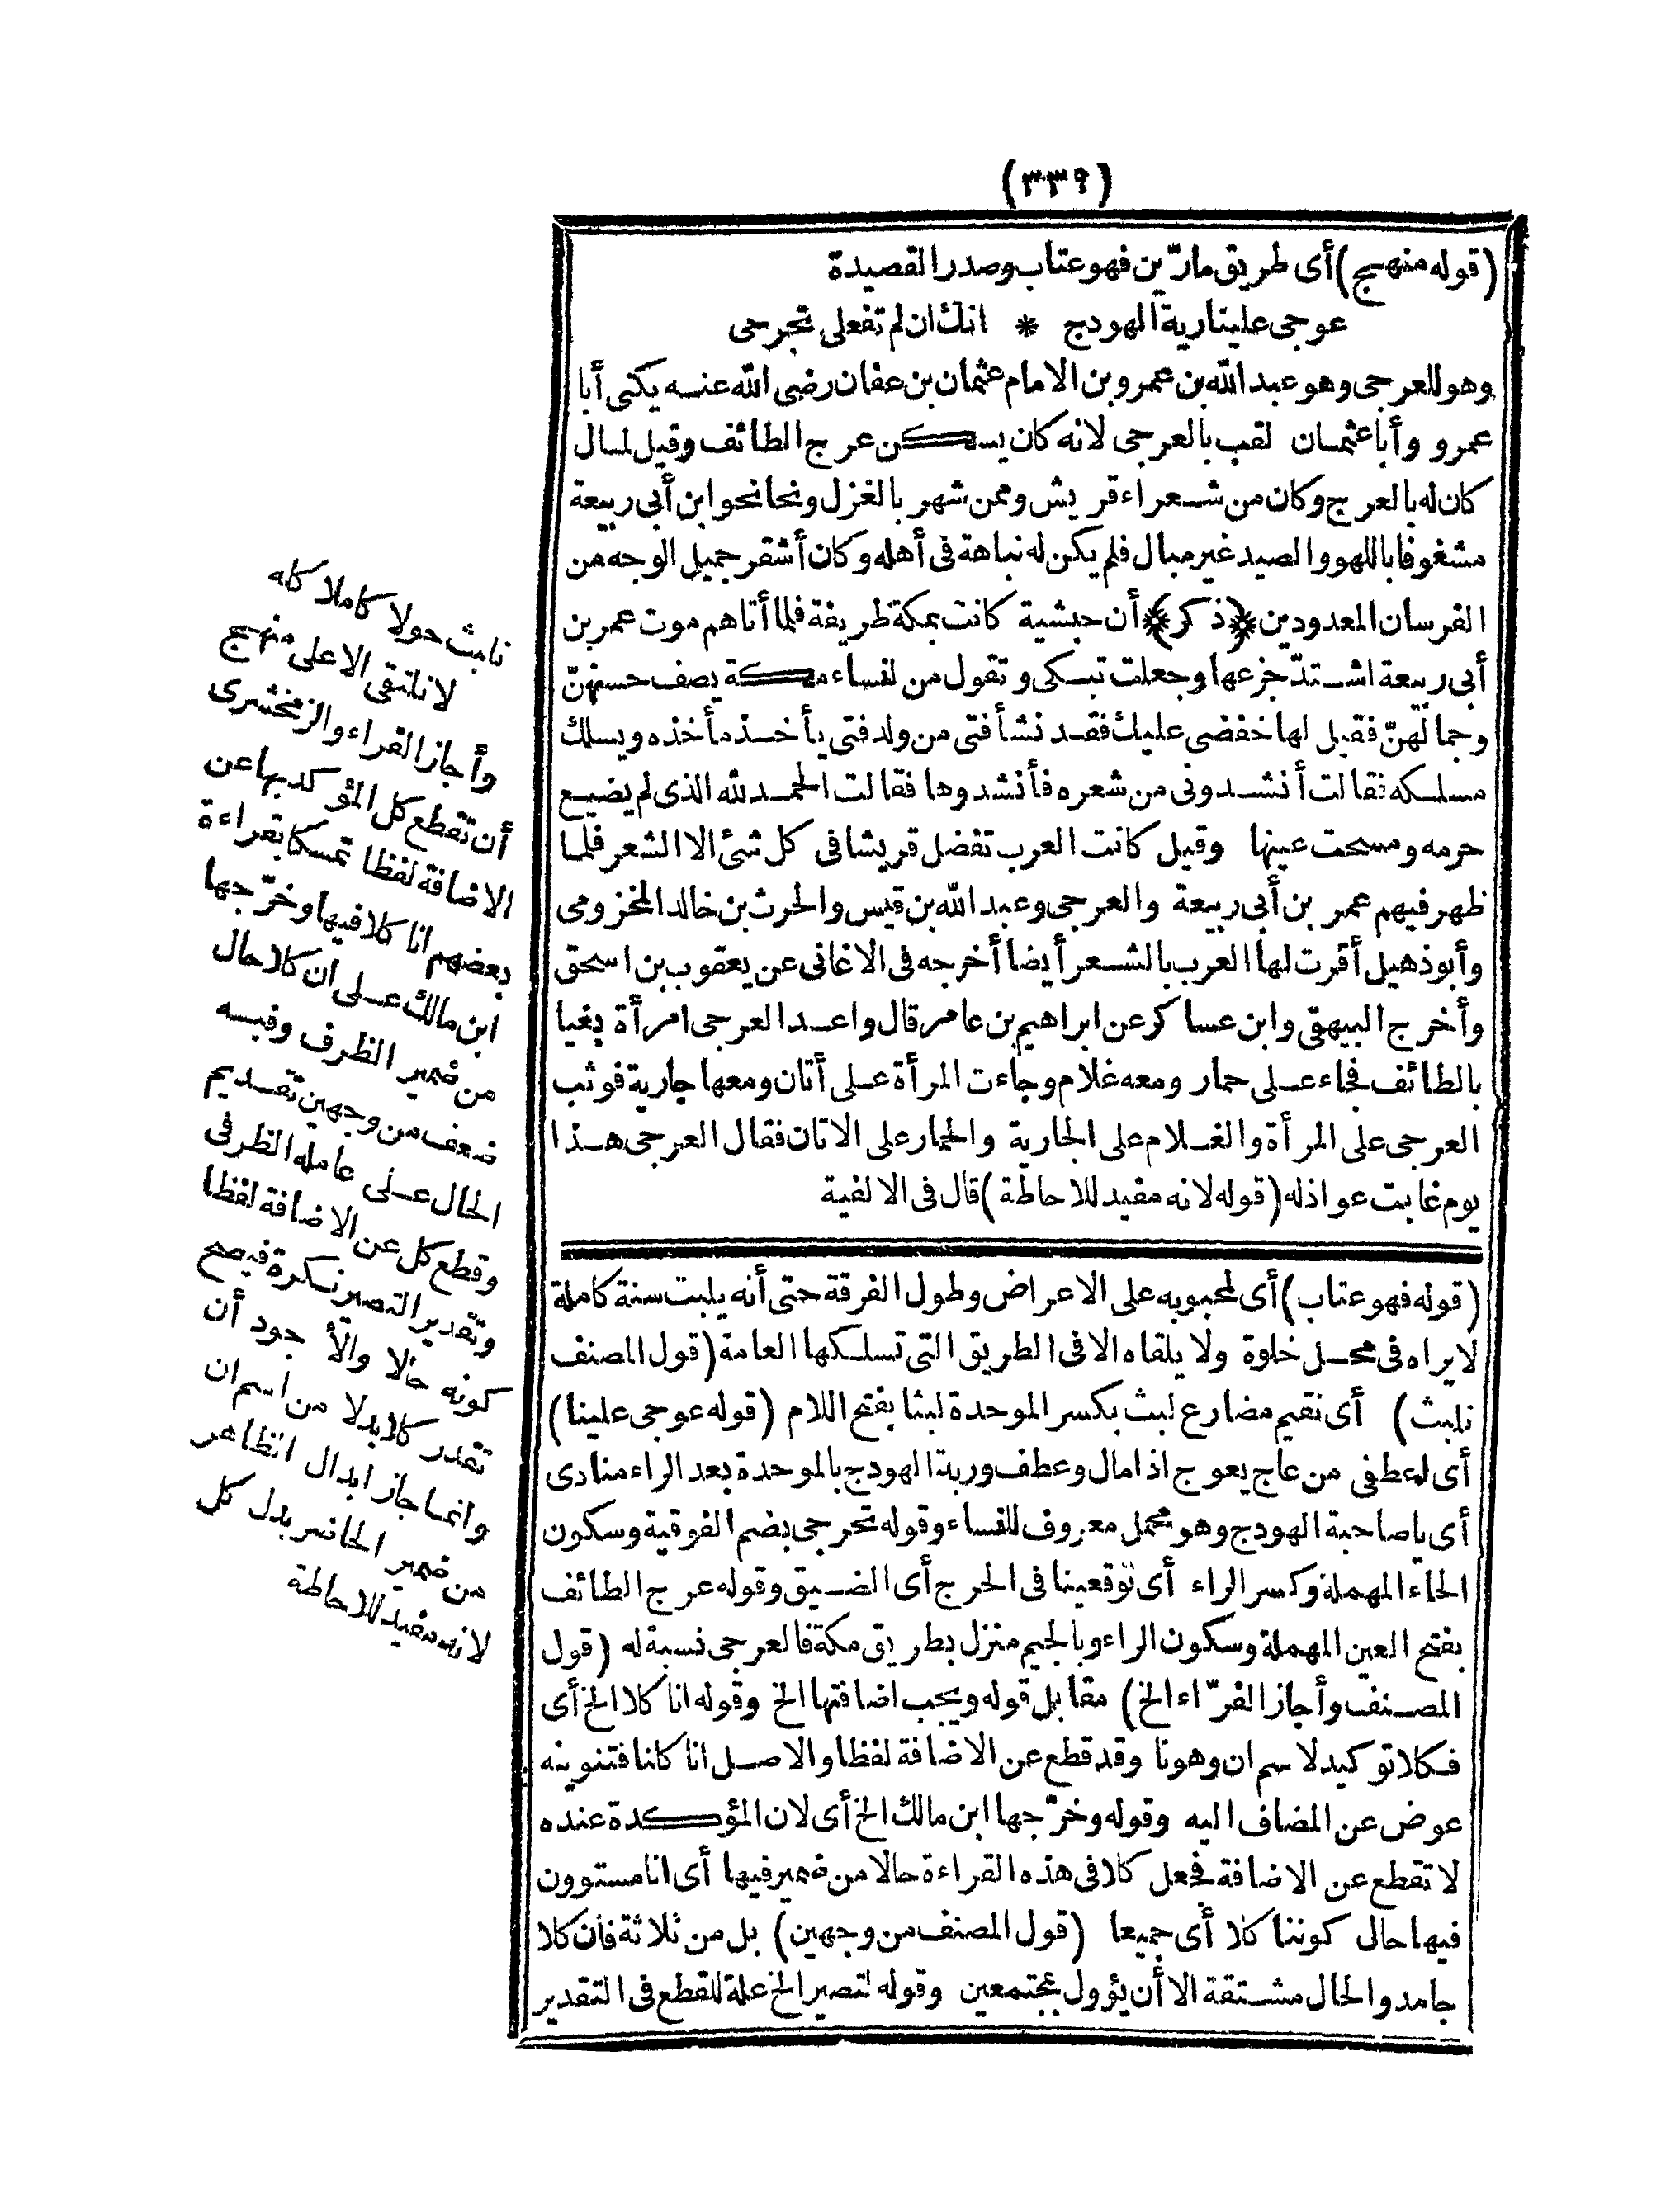 (٣٣٩)
(قوله منهج) أى طريق مارّين فهو عتاب وصدر القصيدة
عوجى علينا ربة الهودج * انك ان لم تفعلى تحرجى
وهو للعرجى وهو عبد الله بن عمرو بن الامام عثمان بن عفان رضى الله عنه يكنى أبا
عمرو وأبا عثمان لقب بالعرجى لانه كان يسكن عرج الطائف وقيل لمال
كان له بالعرج وكان من شعراء قريش وممن شهر بالغزل ونحا نحو ابن أبى ربيعة
مشغوفا باللهو والصيد غير مبال فلم يكن له نباهة فى أهله وكان أشقر جميل الوجه من
الفرسان المعدودين (ذكر) أن حبشية كانت بمكة ظريفة فلما أتاهم موت عمر بن
أبى ربيعة اشتدّ جزعها وجعلت تبكى وتقول من لنساء مكة يصف حسنهنّ
وجمالهنّ فقيل لها خفضى عليك فقد نشأ فتى من ولد فتى يأخذ مأخذه ويسلك
مسلكه فقالت أنشدونى من شعره فأنشدوها فقالت الحمد لله الذى لم يضيع
حرمه ومسحت عينها وقيل كانت العرب تفضل قريشا فى كل شئ الا الشعر فلما
ظهر فيهم عمر بن أبى ربيعة والعرجى وعبد الله بن قيس والحرث بن خالد المخزومى
وأبو ذهبل أقرت لها العرب بالشعر أيضا أخرجه فى الاغانى عن يعقوب بن اسحق
وأخرج البيهقى وابن عساكر عن ابراهيم بن عامر قال واعد العرجى امرأة بغيا
بالطائف فجاء على حمار ومعه غلام وجاءت المرأة على أتان ومعها جارية فوثب
العرجى على المرأة والغلام على الجارية والحمار على الاتان فقال العرجى هذا
يوم غابت عواذله (قوله لانه مفيد للاحاطة) قال فى الالفية
(قوله فهو عتاب) أى لمحبوبه على الاعراض وطول الفرقة حتى أنه يلبث سنة كاملة
لا يراه فى محل خلوة ولا يلقاه الا فى الطريق التى تسلكها العامة (قول المصنف
نلبث) أى نقيم مضارع لبث بكسر الموحدة لبثا بفتح اللام (قوله عوجى علينا)
أى اعطفى من عاج يعوج اذا مال وعطف وربة الهودج بالموحدة بعد الراء منادى
أى يا صاحبة الهودج وهو محمل معروف للنساء وقوله تحرجى بضم الفوقية وسكون
الحاء المهملة وكسر الراء أى توقعينا فى الحرج أى الضيق وقوله عرج الطائف
بفتح العين المهملة وسكون الراء وبالجيم منزل بطريق مكة فالعرجى نسبة له (قول
المصنف وأجاز الفرّاء الخ) مقابل قوله ويجب اضافتها الخ وقوله انا كلا الخ أى
فكلا توكيد لاسم ان وهو نا وقد قطع عن الاضافة لفظا والاصل انا كلنا فتنوينه
عوض عن المضاف اليه وقوله وخرّجها ابن مالك الخ أى لان المؤكدة عنده
لا تقطع عن الاضافة فجعل كلا فى هذه القراءة حالا من ضمير فيها أى انا مستوون
فيها حال كوننا كلا أى جميعا (قول المصنف من وجهين) بل من ثلاثة فان كلا
جامد والحال مشتقة الا أن يؤول بمجتمعين وقوله لتصير الخ علة للقطع فى التقدير
نلبث حولا كاملا كله
لا نلتقى الا على منهج
وأجاز الفراء والزمخشرى
أن تقطع كل المؤكد بها عن
الاضافة لفظا تمسكا بقراءة
بعضهم انا كلا فيها وخرّجها
ابن مالك على ان كلا حال
من ضمير الظرف وفيه
ضعف من وجهين تقديم
الحال على عامله الظرفى
وقطع كل عن الاضافة لفظا
وتقدير التصير نكرة فيصح
كونه حالا والأجود أن
تقدر كلا بدلا من اسم ان
وانما جاز ابدال الظاهر
من ضمير الحاضر بدل كل
لانه مفيد للاحاطة